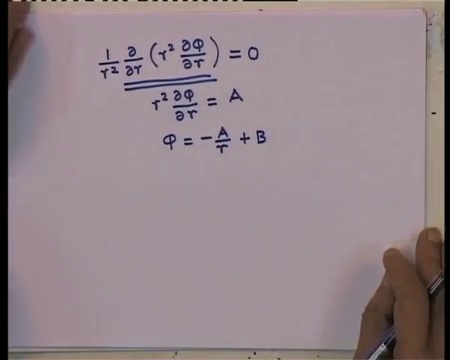 1/r² ∂/∂r (r² ∂φ/∂r) = 0
r² ∂φ/∂r = A
φ = -A/r + B